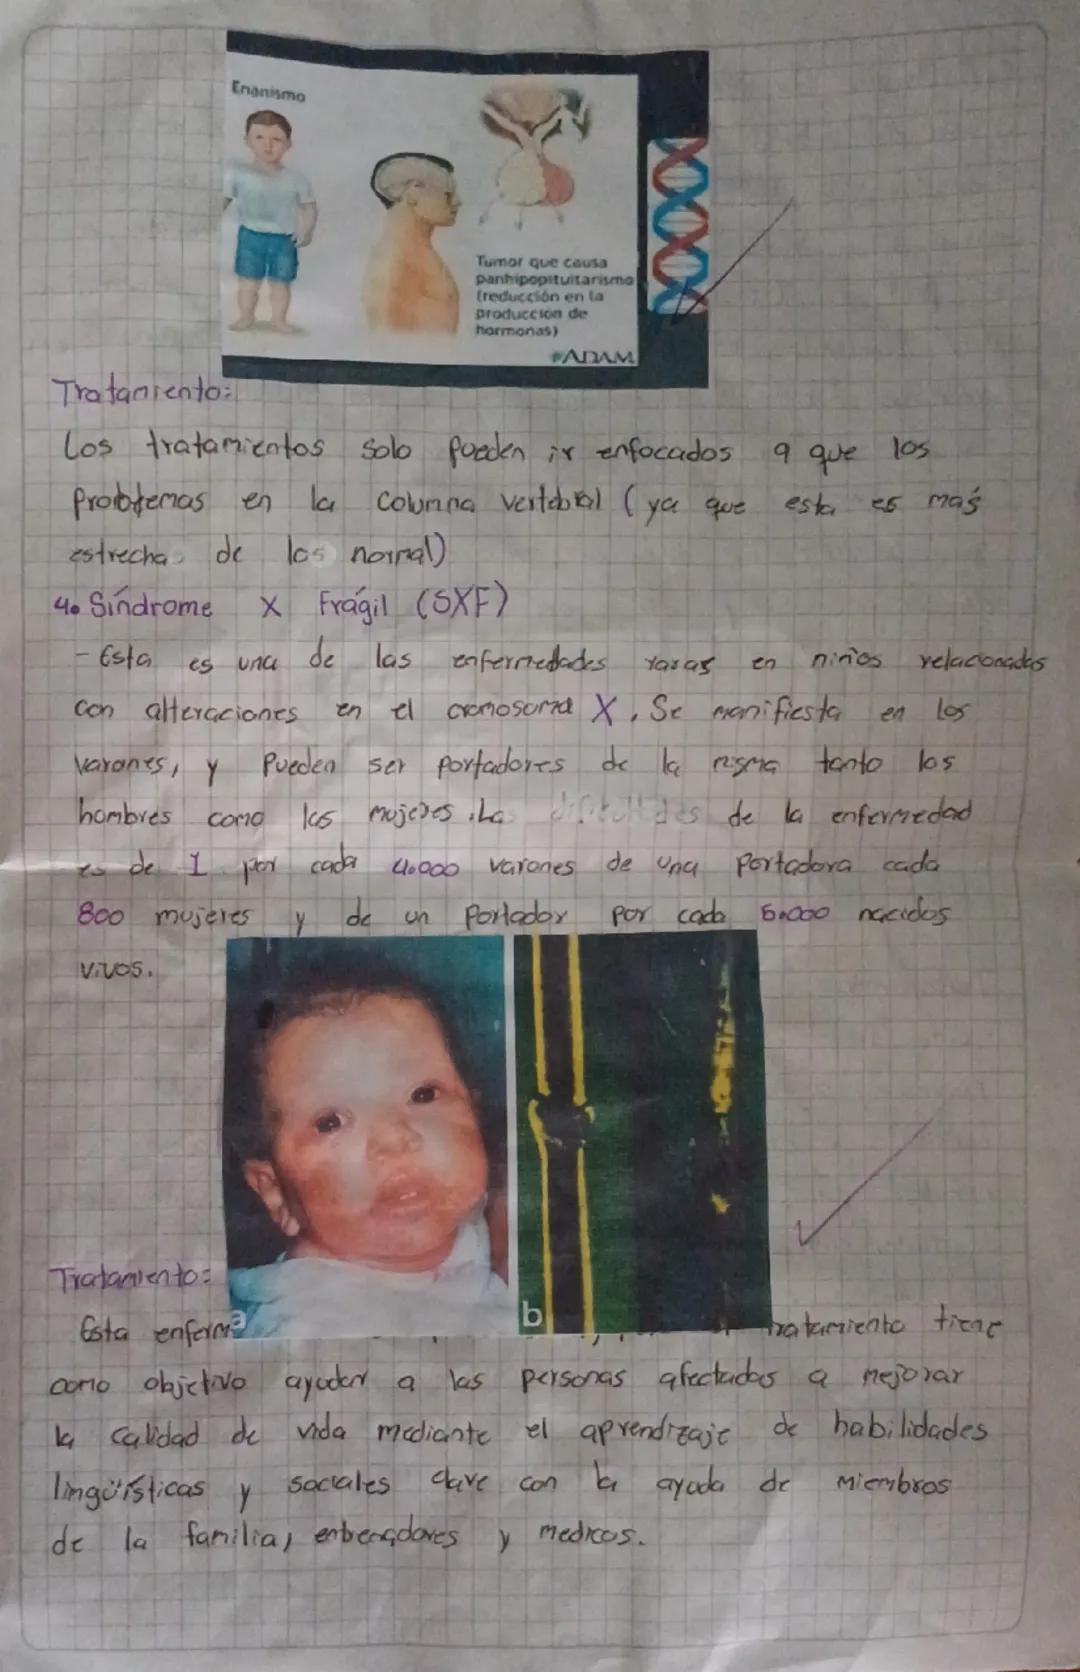 Enanismo
Tumor que causa
panhipopituitarismo
(reducción en la
producción de
hormonas)
ADAM
Tratamiento:
Los tratamientos solo pueden ir enfocados a que los
problemas en la columna vertebral (ya que esta es más
estrecha de los normal)
4. Síndrome X Frágil (SXF)
- Esta es una de las enfermedades raras en niños relacionadas
con alteraciones en el cromosoma X. Se manifiesta en los
varones, y Pueden ser portadores de la misma tanto los
hombres como las mujeres. Las dificultades de la enfermedad
es de 1 por cada 4.000 varones de una Portadora cada
800 mujeres y de un Portador por cada 5.000 nacidos
vivos.
a
b
Tratamiento:
Esta enferm tratamiento tiene
como objetivo ayudar a las personas afectadas a mejorar
la calidad de vida mediante el aprendizaje de habilidades
lingüísticas y sociales clave con la ayuda de miembros
de la familia, y medicos.